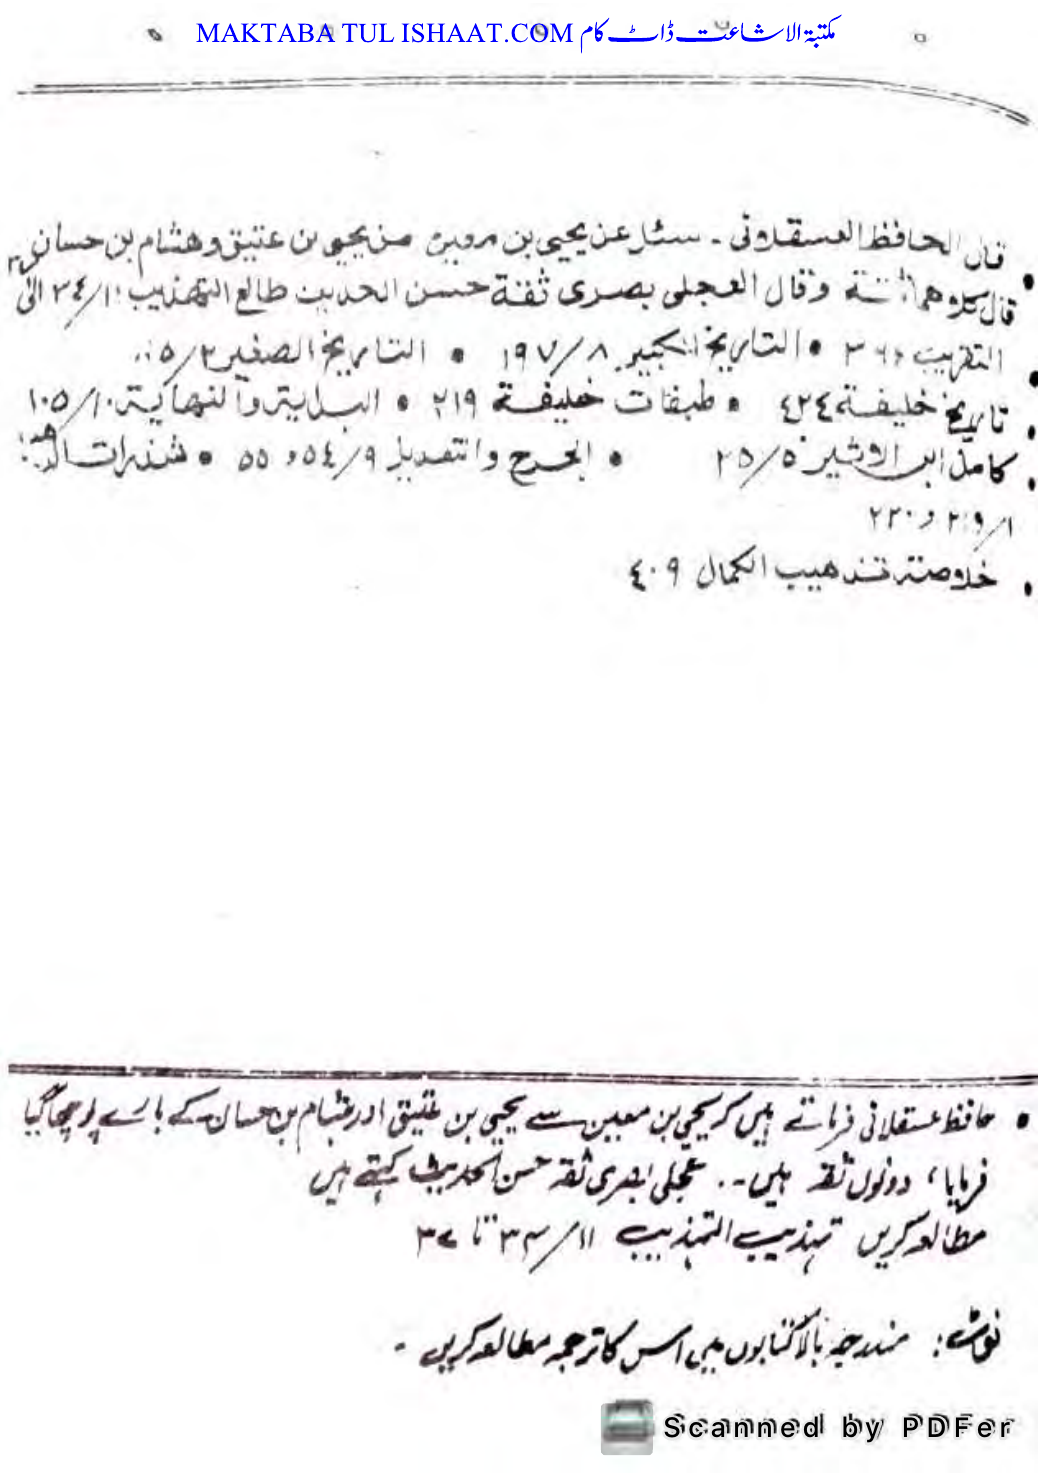 MAKTABA TUL ISHAAT.COM مکتبۃ الاشاعت ڈاٹ کام
قال الحافظ العسقلانی ۔ سئل عن یحیی بن عن یحیی بن عتیق وھشام بن حسان
قال کلاھما ثقة وقال العجلی بصری ثقة حسن الحدیث طالع التھذیب ۳٤/۱۱ الی
التقریب • التاریخ الکبیر ۸/۱۹۷ • التاریخ الصغیر
• تاریخ خلیفة ٤۲٤ • طبقات خلیفة ۲۱۹ • البدایة والنھایة ۱۰/۱۰۵
• کامل ابن الاثیر ۵/۲۵ • الجرح والتعدیل ۹/۵٤ و ۵۵ • شذرات
۱/ و ۲۲۰
• خلاصة تذھیب الکمال ٤۰۹
• حافظ عسقلانی فرماتے ہیں کہ یحیی بن معین سے یحیی بن عتیق اور ھشام بن حسان کے بارے پوچھا گیا
فرمایا، دونوں ثقہ ہیں ۔۔ عجلی بصری ثقہ حسن الحدیث کہتے ہیں
مطالعہ کریں تہذیب التہذیب ۱۱/۳۴ تا ۳۷
نوٹ: مندرجہ بالا کتابوں میں اس کا ترجمہ مطالعہ کریں ۔
Scanned by PDFer